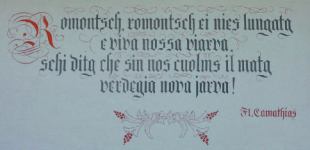 Romontsch, romontsch ei nies lungatg
e viva nossa viarva,
schi ditg che sin nos cuolms il matg
verdegia nova jarva!
Fl. Camathias